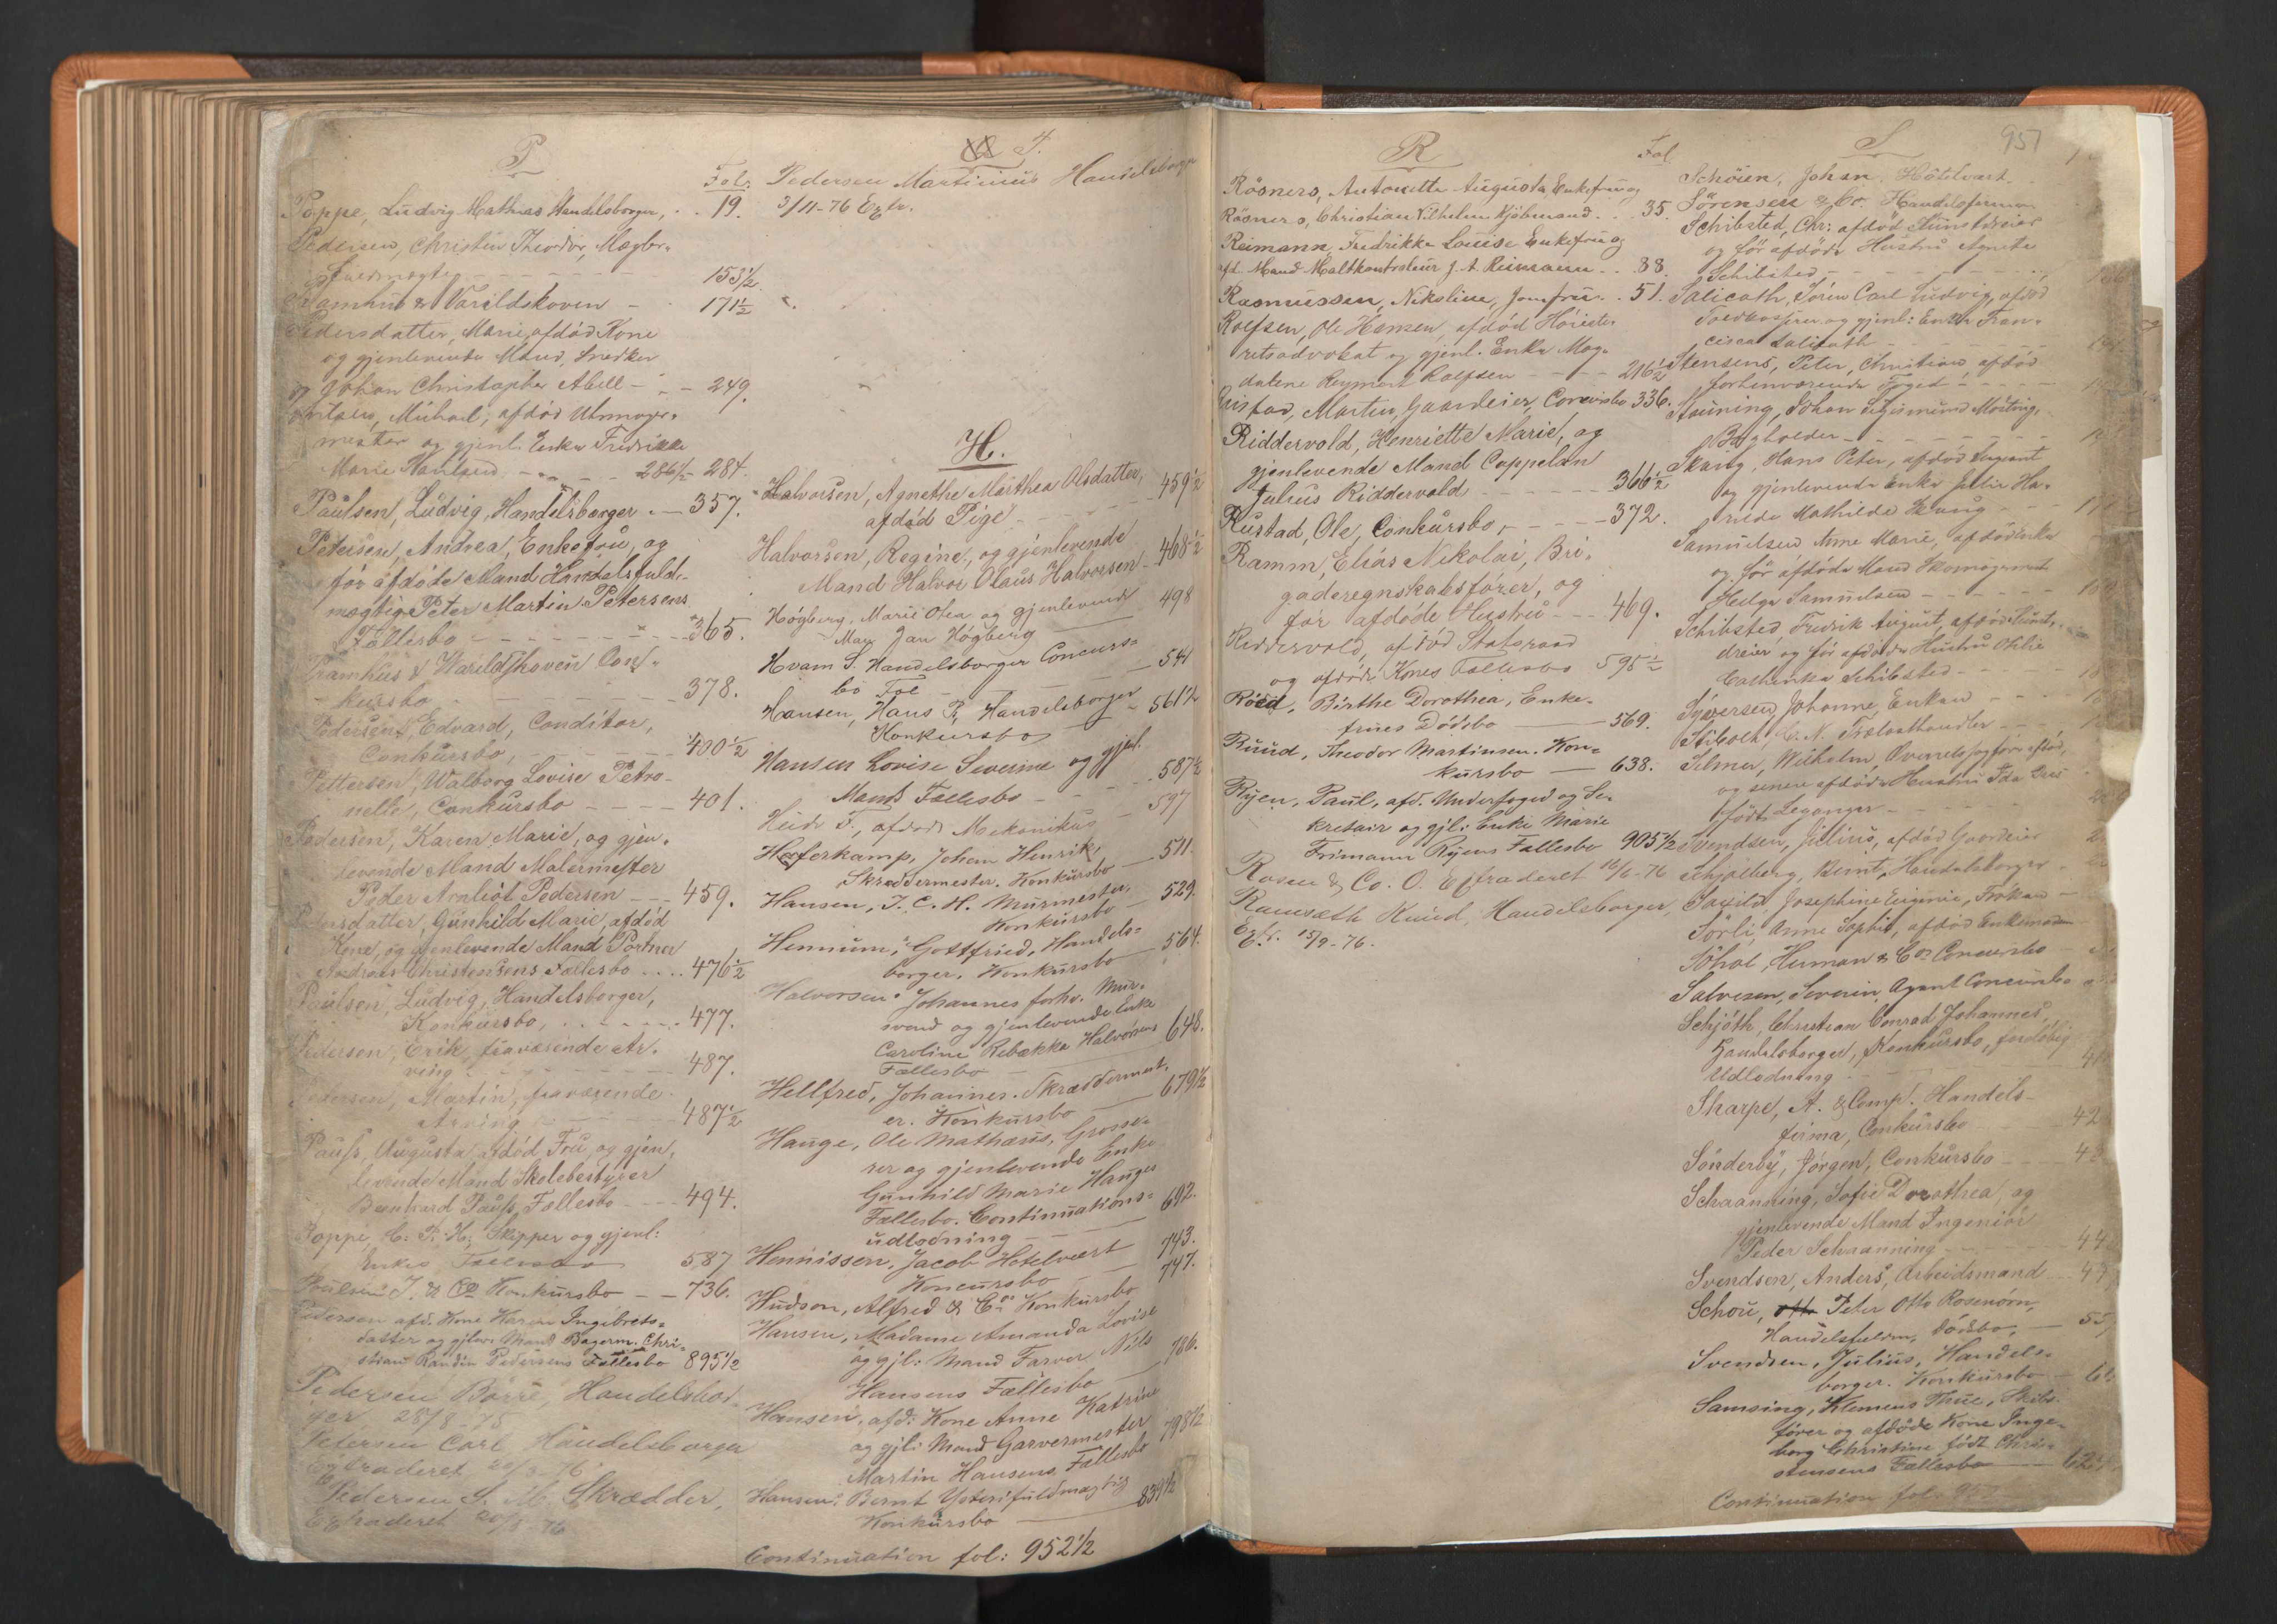 P
Fol.
Poppe, Ludvig Mathias Handelsborger, . . 19.
Pedersen, Christin Theodor, Mægler-
fuldmægtig - - - - - 153½.
Framhus & Varildskoven - 171½
Pedersdatter, Marie, afdød Kone
og gjenlevende Mand, Snedker
Johan Christopher Abell - - - 249.
Michael, afdød Uhrmager-
mester og gjenl. Enke Fredrikke
Marie Paulsen - - - 286½ - 284.
Paulsen, Ludvig, Handelsborger . - 357.
Petersen, Andrea, Enkefru, og
før afdøde Mand Handelsfuld-
mægtig Peter Martin Petersens
Fællesbo - - - - - 365.
Framhus & Warildskoven Con-
kursbo - - - - - 378.
Pedersen, Edvard, Conditor,
Conkursbo, - - - - 400½
Pettersen, Walborg Lovise Petro-
nelle, Conkursbo - - - - 401.
Pedersen, Karen Marie, og gjen-
levende Mand Malermester
Peder Arnliot Pedersen - - - 459.
Pedersdatter, Gunhild Marie, afdød
Kone, og gjenlevende Mand Portner
Andreas Christensens Fællesbo . . . . 476½
Paulsen, Ludvig, Handelsborger,
Konkursbo, . . - - - - 477.
Pedersen, Erik, fraværende Ar-
ving - - - - - 487.
Pedersen, Martin, fraværende
Arving - - - - 487½
Pauss, Augusta, afdød Fru, og gjen-
levende Mand Skolebestyrer
Bernhard Pauss, Fællesbo - - - 494.
Poppe, C. P. H., Skipper og gjenl:
Enkes Fællesbo 587
Poulsen J. & Co Konkursbo - - 736.
Pedersen afd. Kone Karen Ingebrets-
datter og gjlev. Mand Bagerm. Chri-
stian Randin Pedersens Fællesbo 895½
Pedersen Børre, Handelsbor-
ger 28/8-75
Petersen Carl Handelsborger
Extraderet 20/3-76
Pedersen S. M. Skrædder,
Extraderet 20/3-76
P.
Pedersen Martinius Handelsborger
3/11-76 Extr.
H.
Halvorsen, Agnethe Marthea Olsdatter,
afdød Pige - - - 459½
Halvorsen, Regine, og gjenlevende
Mand Halvor Olaus Halvorsen - 468½
Høgberg, Marie Olea og gjenlevende
Man Jan Høgberg 498
Hvam S. Handelsborger Concurs-
bo Fol - - - 541
Hansen, Hans P., Handelsborger
Konkursbo - 561½
Hansen Lovise Severine og gjenl.
Mands Fællesbo - - - 587½
Heide F., afdøde Mekanikus - 597
Haferkamp, Johan Henrik,
Skræddermester. Konkursbo - 511.
Hansen, J. C. H. Murmester,
Konkursbo - 529.
Hennum, Gottfried, Handels-
borger, Konkursbo - 564.
Halvorsen Johannes forhv. Mur-
svend og gjenlevende Enke
Caroline Rebækka Halvorsens
Fællesbo - 648.
Hellfred, Johannes. Skræddermest-
er. Konkursbo - 679½
Hauge, Ole Mathæus, Grosse-
rer og gjenlevende Enke
Gunhild Marie Hauges
Fællesbo. Continuations-
udlodning - - - 692.
Hennissen, Jacob Hotelvært
Koncursbo - 743.
Hudson, Alfred & Co Konkursbo 747.
Hansen, Madame Amanda Lovise
og gjl: Mand Farver Nils
Hansens Fællesbo - 786.
Hansen, afd: Kone Anne Katrine
og gjl: Mand Garvermester
Martin Hansens Fællesbo 798½
Hansen, Bernt Ysterifuldmægtig
Konkursbo - 839½
Continuation fol: 952½
R
Fol.
Rösners, Antonette Augusta, Enkefru og
Rösners, Christian Vilhelm Kjøbmand. . . 35.
Reimann, Fredrikke Louise Enkefru og
afd. Mand Maltkontroleur J. A. Reimann . . 88.
Rasmussen, Nikoline, Jomfru . . 51.
Rolfsen, Ole Hansen, afdød Høieste-
retsadvokat og gjenl. Enke Mag-
dalene Reymert Rolfsen - - - - 216½
Martin, Gaardeier, Concursbo 336.
Riddervold, Henriette Marie, og
gjenlevende Mand Cappelan
Julius Riddervold - - - - - 366½
Rustad, Ole, Conkursbo, - - - - 372.
Ramm, Elias Nikolai, Bri-
gaderegnskabsfører, og
før afdøde Hustru - - - 469.
Riddervold, afdød Statsraad
og afdøde Kones Fællesbo 595½
Röed, Birthe Dorothea, Enke-
frues Dødsbo - 569.
Ruud, Theodor Martinsen. Kon-
kursbo - 638.
Ryen, Paul, afd. Underfoged og Se-
kretair og gjl: Enke Marie
Frimann Ryens Fællesbo 905½
Rosen & Co. O. Extraderet 16/6-76
Ramsæth Knud, Handelsborger,
Extr. 15/9-76.
S
951
Schöien, Johan, Hôtelvært.
Sörensen & Co. Handelsfirma
Schibsted, Chr: afdød Kunstdreier
og før afdøde Hustru Agnete
Schibsted, - - - - -
Salicath, Sören Carl Ludvig, afdød
Toldkasserer og gjenl: Enke Fran-
cisca Salicath - - - -
Stensens, Peter, Christian, afdød
forhenværende Foged - - - -
Stauning, Johan Sigismund Møsting,
Bogholder - - - - -
Skavig, Hans Peter, afdød Sergeant
og gjenlevende Enke Julie Ha-
Mathilde Haug - - -
Samuelsen Anne Marie, afdød Enke
og før afdøde Mand Skomagermest.
Helge Samuelsen - - - - -
Schibsted, Fredrik August, afdød Kunst-
dreier og før afdøde Hustru Othlie
Cathinka Schibsted -
Syversen, Johanne, Enken - - -
Stibolt, C. N. Trælasthandler - - -
Selmer, Wilhelm, Overretssagfører afdød,
og senere afdøde Hustru Ida
født Leganger -
Svendsen, Julius, afdød Gaardeier
Schjølberg, Bernt, Handelsborger
Saxild Josephine Eugenie, Frøken -
Sørli, Anne Sophie, afdød Enkemadam
Söhol, Herman & Co Concursbo
Salvesen, Severin, Agent Concursbo
Schjøth, Christian Conrad Johannes,
Handelsborger, Konkursbo, foreløbig
Udlodning - - -
Sharpe, A. & Comp. Handels-
firma, Conkursbo - - - 42
Sönderby, Jørgen, Conkursbo - - - 43
Schaanning, Sofie Dorothea, og
gjenlevende Mand Ingeniør
Peder Schaanning - - - - 44
Svendsen, Anders, Arbeidsmand - - 47
Schou, Peter Otto Rosenørn,
Handelsfuldm, Dødsbo, - 55
Svendsen, Julius, Handels-
borger. Konkursbo - 61
Samsing, Klemens Thue, Skibs-
fører og afdøde Kone Inge-
borg Christine født Chri-
stensens Fællesbo - 62
Continuation fol: 952